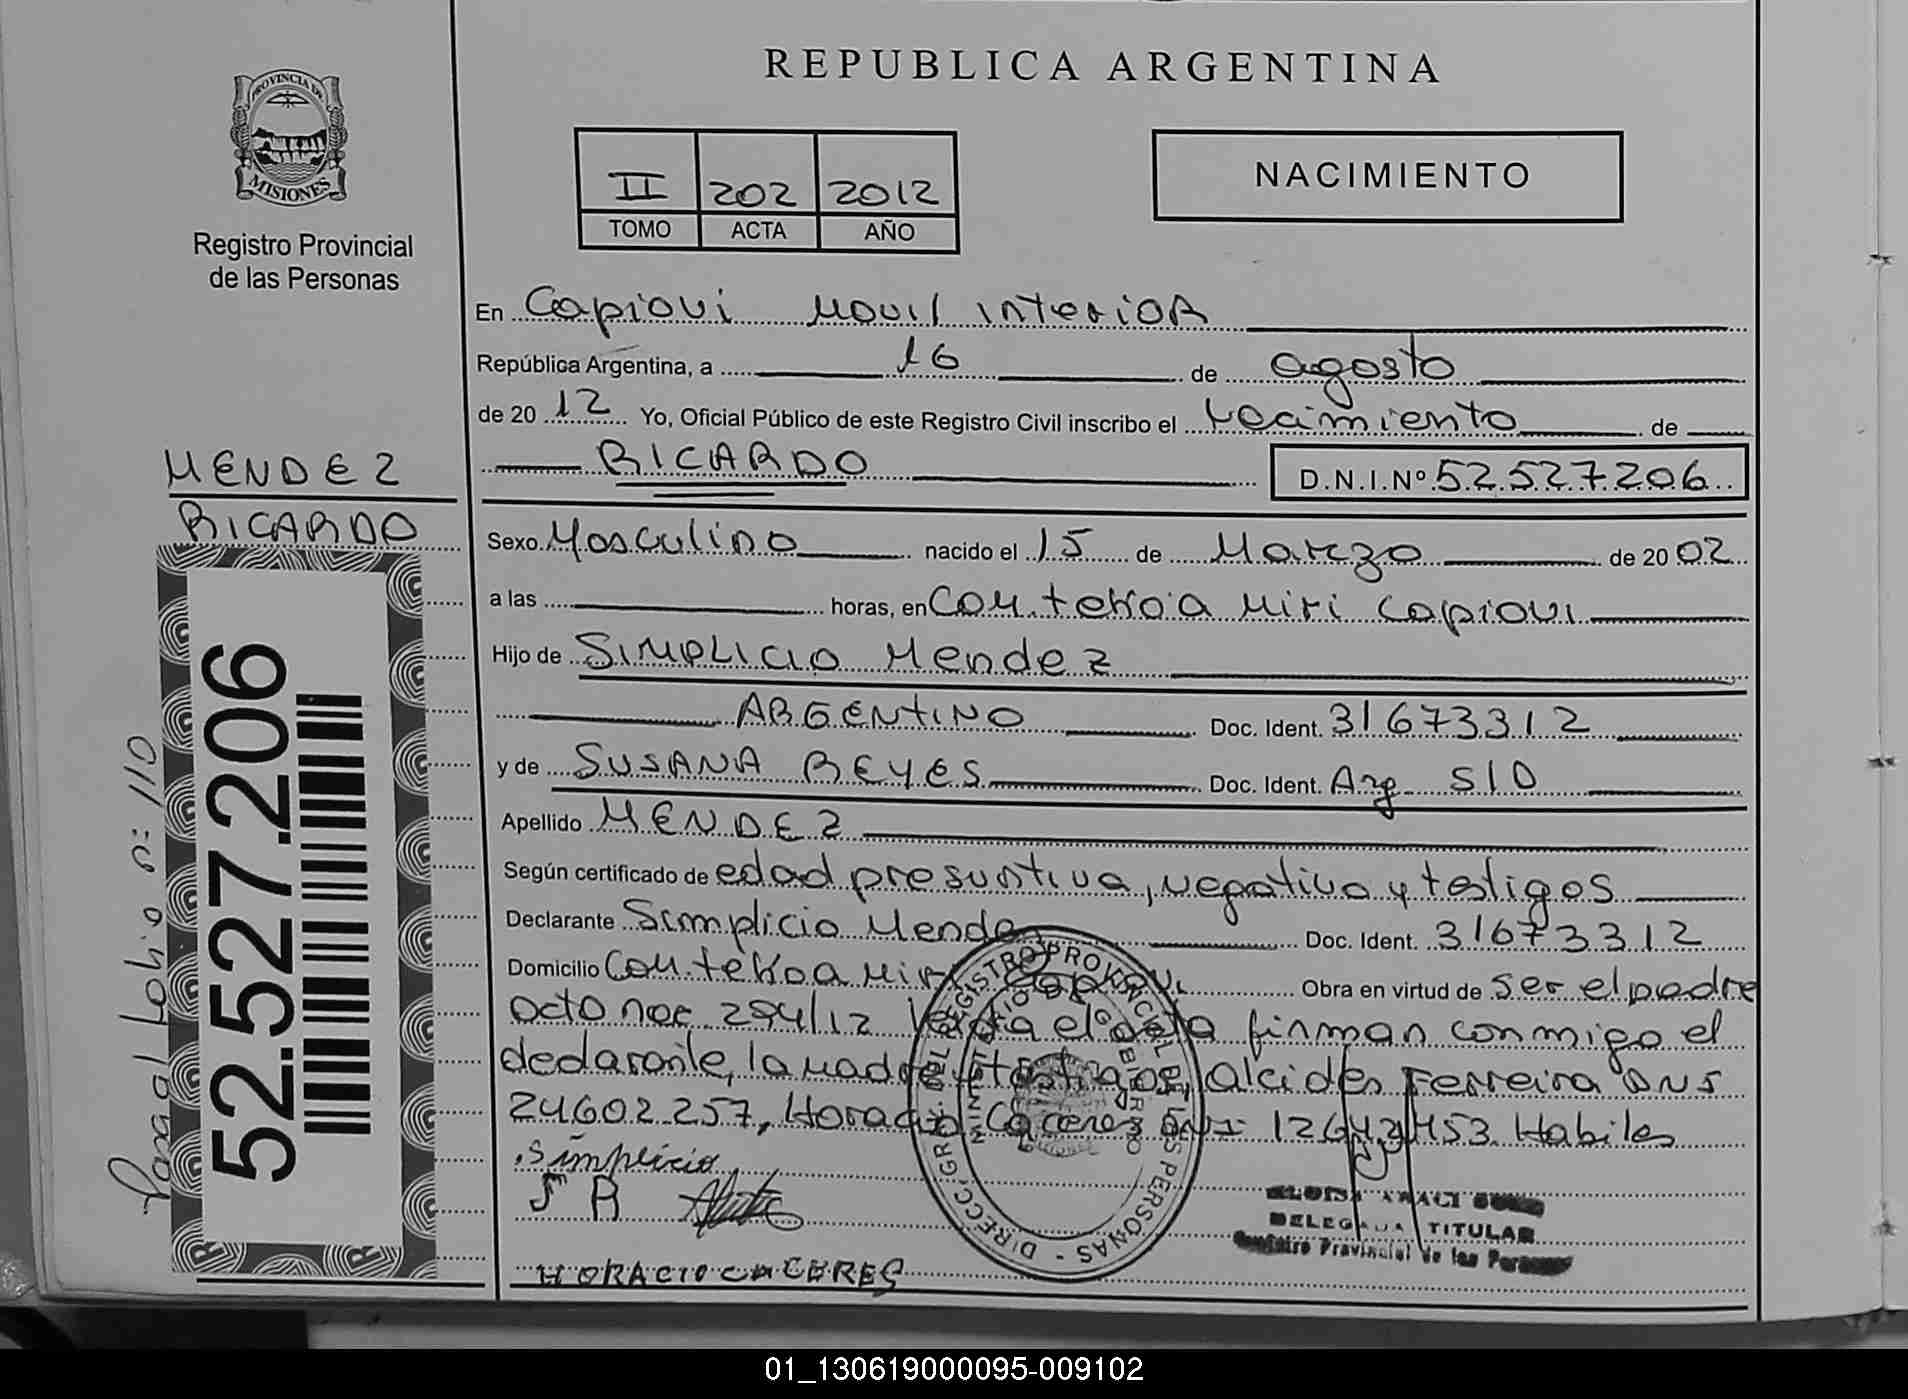 REPUBLICA ARGENTINA
PROVINCIA DE
MISIONES
Registro Provincial
de las Personas
II 202 2012
TOMO ACTA AÑO
NACIMIENTO
En Capiovi Movil interior
República Argentina, a 16 de agosto
de 2012 Yo, Oficial Público de este Registro Civil inscribo el nacimiento de
RICARDO D.N.I.Nº 52.527.206
MENDEZ
RICARDO
Sexo Masculino nacido el 15 de Marzo de 2002
a las horas, en Com. tekoa Miri Capiovi
Hijo de SIMPLICIO Mendez
ARGENTINO Doc. Ident. 31673312
y de SUSANA REYES Doc. Ident. Arg S/D
Apellido MENDEZ
Según certificado de edad presuntiva, negativo y testigos
Declarante Simplicio Mendez Doc. Ident. 31673312
Domicilio Com. tekoa Miri Capiovi Obra en virtud de ser el padre
Dcto nac 294/12 Leida el acta firman conmigo el
declarante, la madre y testigos, Alcides Ferreira DNI
24602257, Horacio Caceres DNI 12643453 Habiles
Simplicio
S R
HORACIO CACERES
52.527.206
n: 110
DIRECC. GRAL. DEL REGISTRO PROVINCIAL DE LAS PERSONAS
MINISTERIO DE GOBIERNO
DELEGADA TITULAR
Registro Provincial de las Personas
01_130619000095-009102